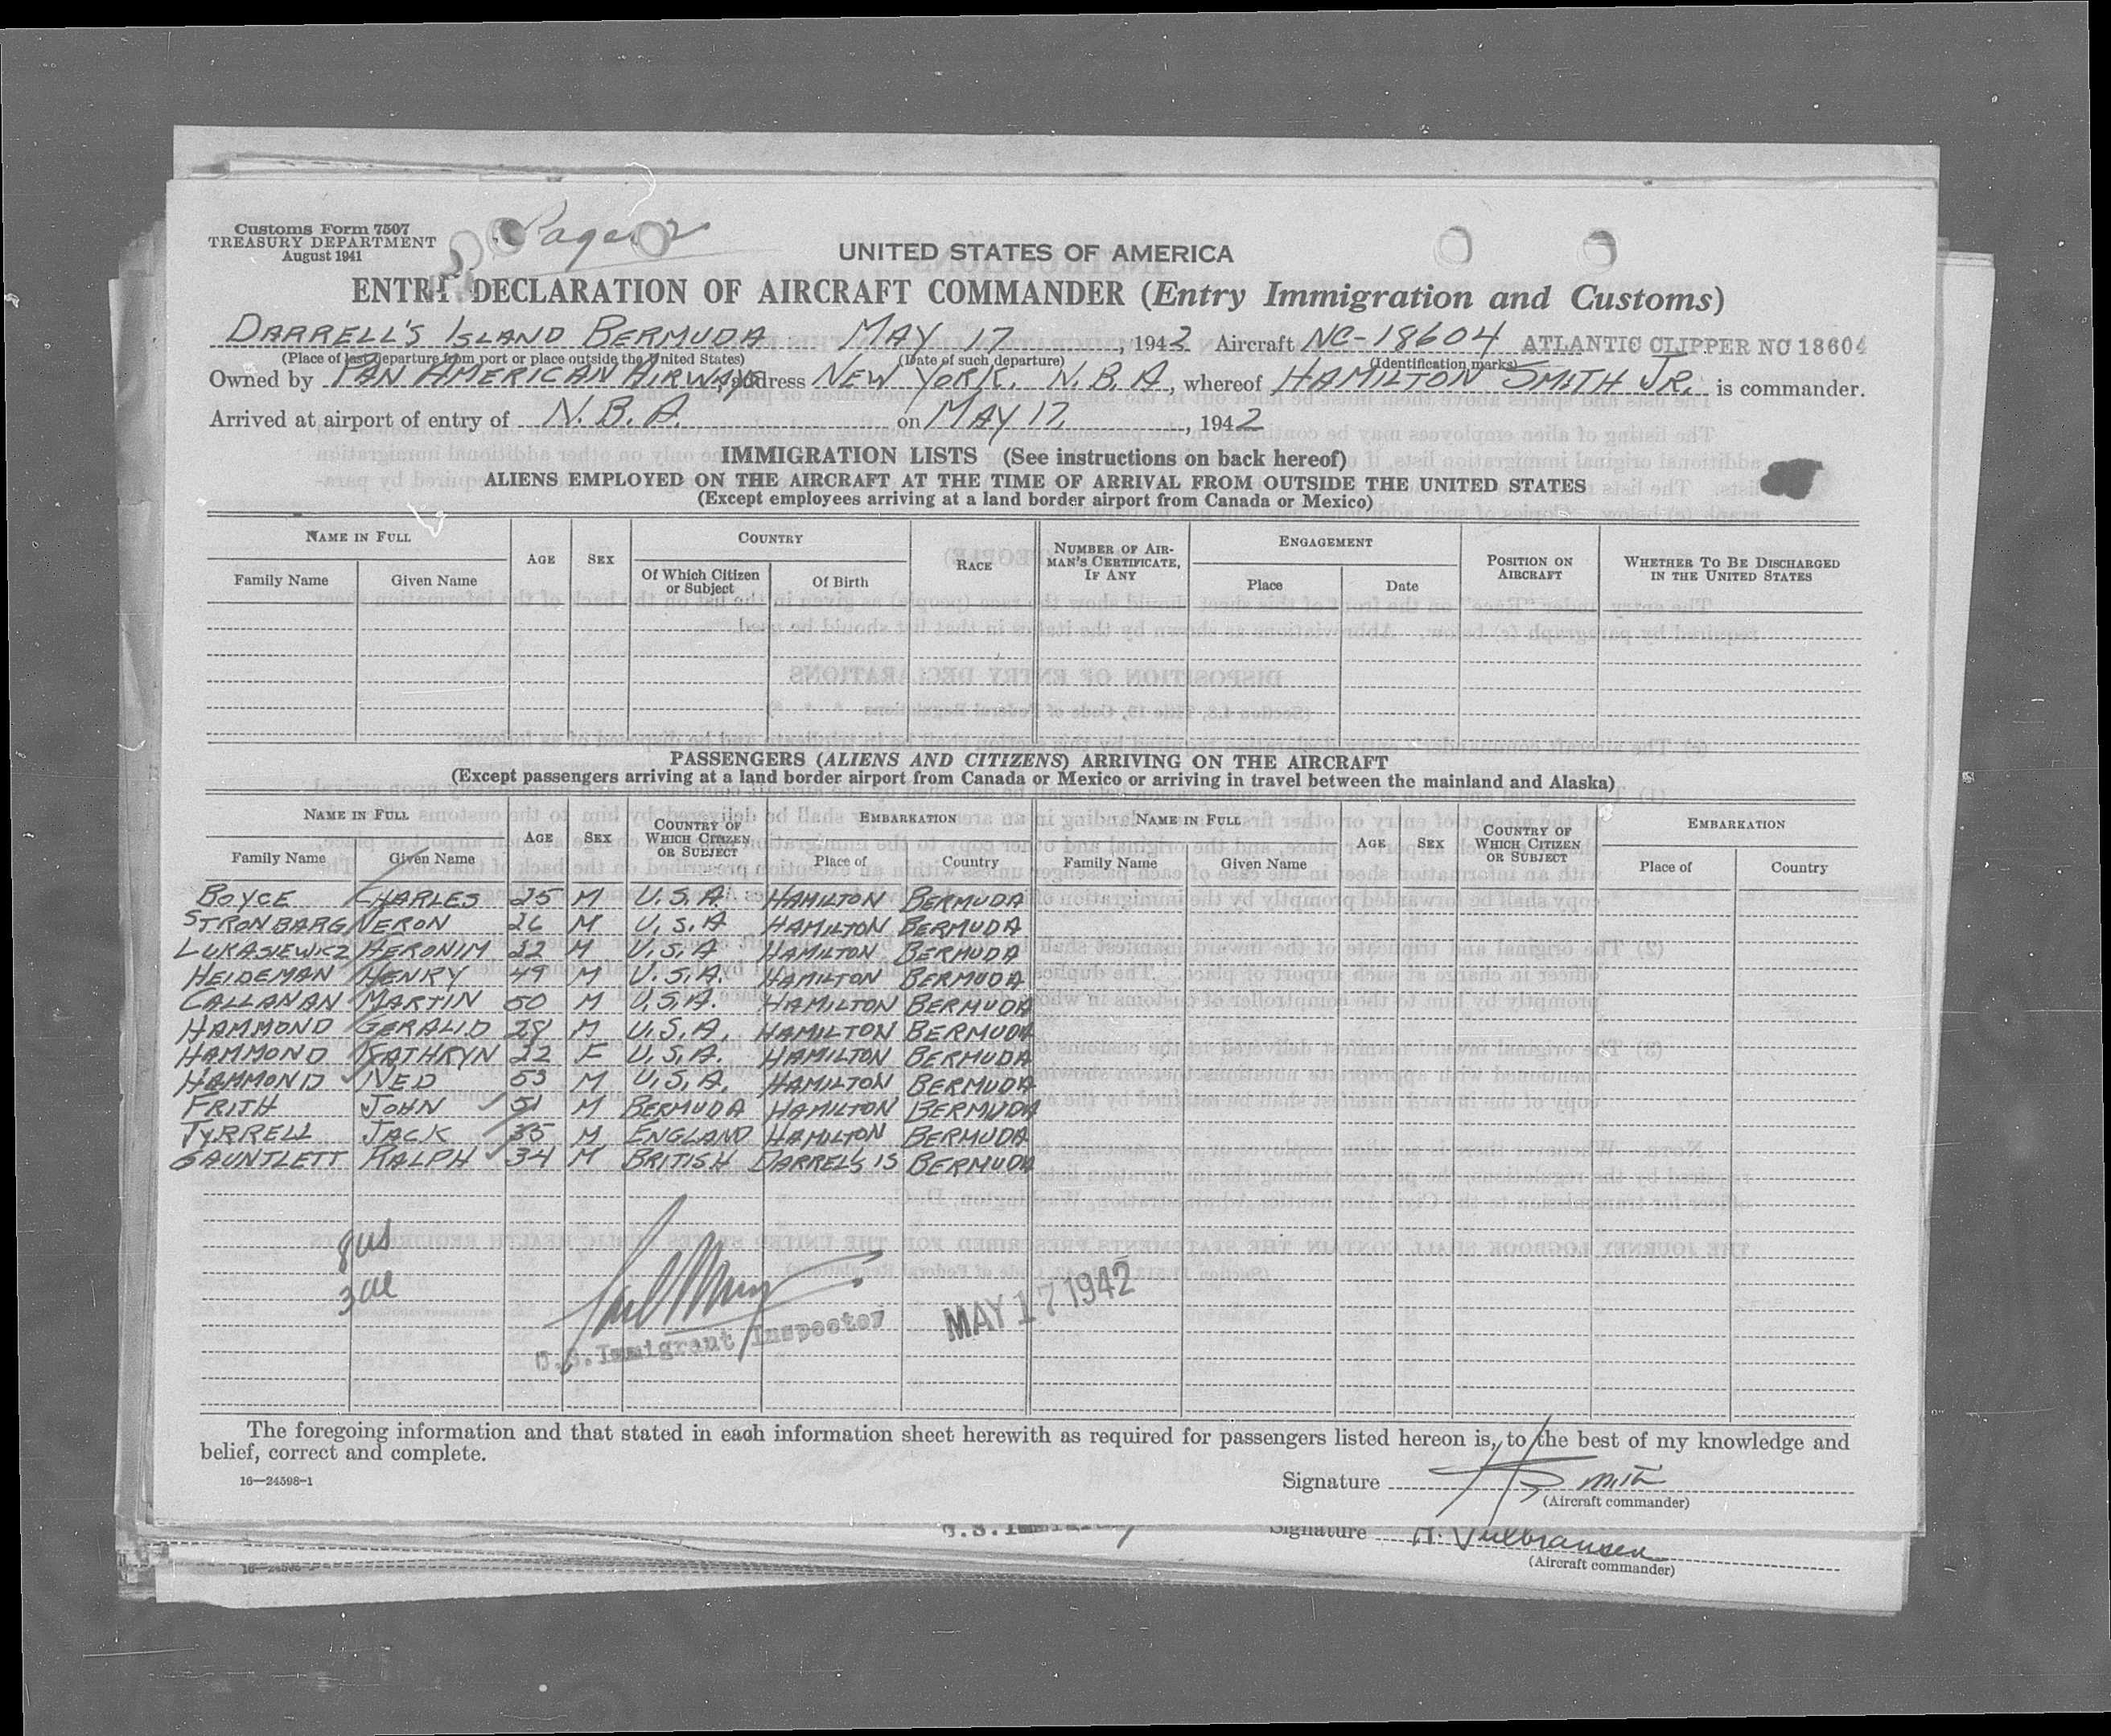 Customs Form 7507
TREASURY DEPARTMENT
August 1941
Page 2
UNITED STATES OF AMERICA
ENTRY DECLARATION OF AIRCRAFT COMMANDER (Entry Immigration and Customs)
DARRELL'S ISLAND BERMUDA MAY 17, 1942 Aircraft NC-18604 ATLANTIC CLIPPER NC 18604
(Place of last departure from port or place outside the United States) (Date of such departure) (Identification marks)
Owned by PAN AMERICAN AIRWAYS address NEW YORK. N.B.A, whereof HAMILTON SMITH JR. is commander.
Arrived at airport of entry of N.B.A. on MAY 17, 1942
IMMIGRATION LISTS (See instructions on back hereof)
ALIENS EMPLOYED ON THE AIRCRAFT AT THE TIME OF ARRIVAL FROM OUTSIDE THE UNITED STATES
(Except employees arriving at a land border airport from Canada or Mexico)
NAME IN FULL AGE SEX COUNTRY RACE NUMBER OF AIRMAN'S CERTIFICATE, IF ANY ENGAGEMENT POSITION ON AIRCRAFT WHETHER TO BE DISCHARGED IN THE UNITED STATES
Family Name Given Name Of Which Citizen or Subject Of Birth Place Date
PASSENGERS (ALIENS AND CITIZENS) ARRIVING ON THE AIRCRAFT
(Except passengers arriving at a land border airport from Canada or Mexico or arriving in travel between the mainland and Alaska)
NAME IN FULL AGE SEX COUNTRY OF WHICH CITIZEN OR SUBJECT EMBARKATION NAME IN FULL AGE SEX COUNTRY OF WHICH CITIZEN OR SUBJECT EMBARKATION
Family Name Given Name Place of Country Family Name Given Name Place of Country
BOYCE CHARLES 25 M U.S.A. HAMILTON BERMUDA
STRONBARG NERON 26 M U.S.A HAMILTON BERMUDA
LUKASIEWICZ HERONIM 22 M U.S.A HAMILTON BERMUDA
HEIDEMAN HENRY 49 M U.S.A. HAMILTON BERMUDA
CALLANAN MARTIN 50 M U.S.A. HAMILTON BERMUDA
HAMMOND GERALD 28 M U.S.A. HAMILTON BERMUDA
HAMMOND KATHRYN 22 F U.S.A. HAMILTON BERMUDA
HAMMOND NED 53 M U.S.A. HAMILTON BERMUDA
FRITH JOHN 51 M BERMUDA HAMILTON BERMUDA
TYRRELL JACK 35 M ENGLAND HAMILTON BERMUDA
GAUNTLETT RALPH 34 M BRITISH DARRELL'S IS BERMUDA
8 us
3 al
U.S. Immigrant Inspector
MAY 17 1942
The foregoing information and that stated in each information sheet herewith as required for passengers listed hereon is, to the best of my knowledge and
belief, correct and complete.
16—24598-1
Signature H Smith
(Aircraft commander)
Signature
(Aircraft commander)